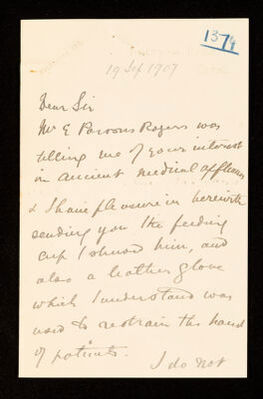 1374
19 Sep 1907
Dear Sir
Mr E Parsons Rogers was
telling me of your interest
in ancient medical
& I have pleasure in herewith
sending you the feeding
cup I shewed him, and
also a leather glove
which I understand was
used to restrain the hand
of patients.
I do not